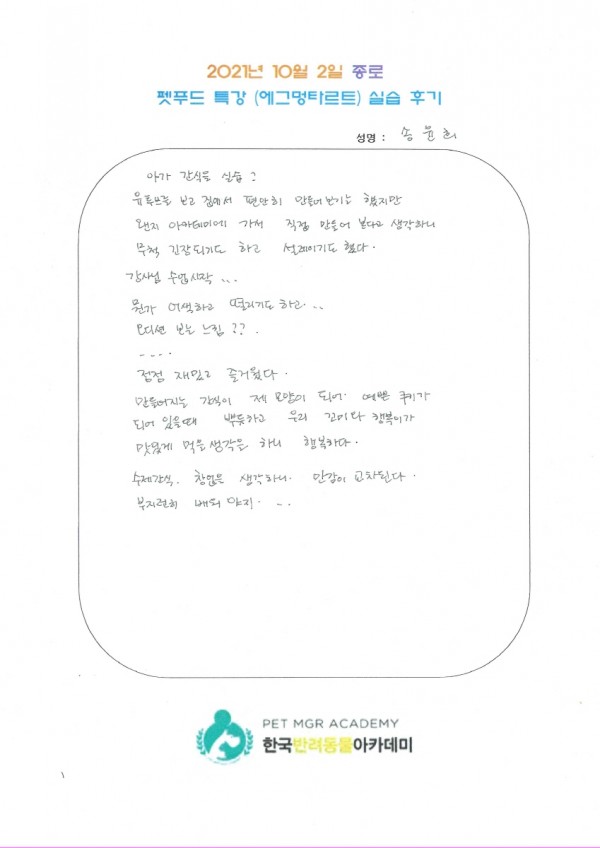 2021년 10월 2일 종로
펫푸드 특강 (에그멍타르트) 실습 후기
성명 : 송윤희
아가 간식을 실습?
유튜브를 보고 집에서 편안히 만들어보기는 했지만
왠지 아카데미에 가서 직접 만들어 본다고 생각하니
무척 긴장되기도 하고 설레이기도 했다.
강사님 수업시작...
뭔가 어색하고 떨리기도 하고...
오디션 보는 느낌??.
....
점점 재밌고 즐거웠다.
만들어지는 간식이 제 모양이 되어 예쁜 쿠키가
되어 있을때 뿌듯하고 우리 꼬미와 행복이가
맛있게 먹을생각을 하니 행복하다.
수제간식. 창업을 생각하니. 만감이 교차된다.
부지런히 배워 야지. ...
PET MGR ACADEMY
한국반려동물아카데미